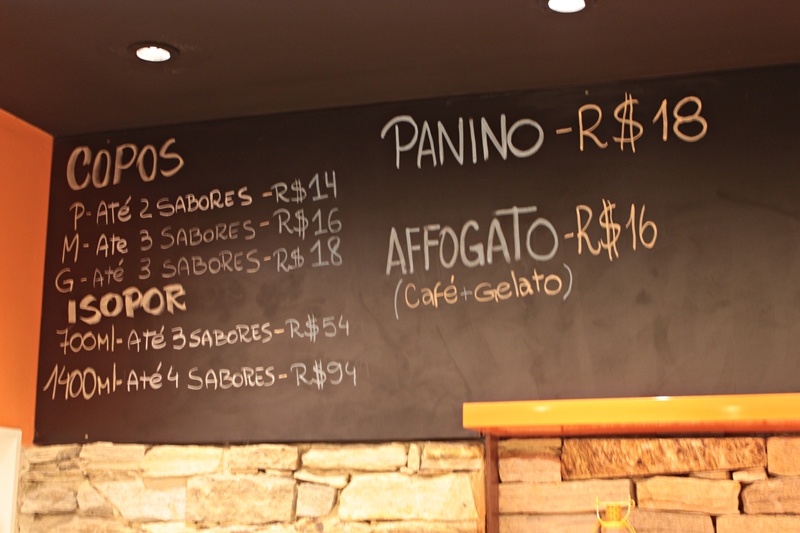 COPOS
P- Até 2 SABORES - R$14
M- Ate 3 SABORES - R$16
G - Até 3 SABORES - R$ 18
ISOPOR
700ml- Até 3 SABORES - R$54
1400ml- Até 4 SABORES - R$94
PANINO - R$18
AFFOGATO - R$16
(Café + Gelato)